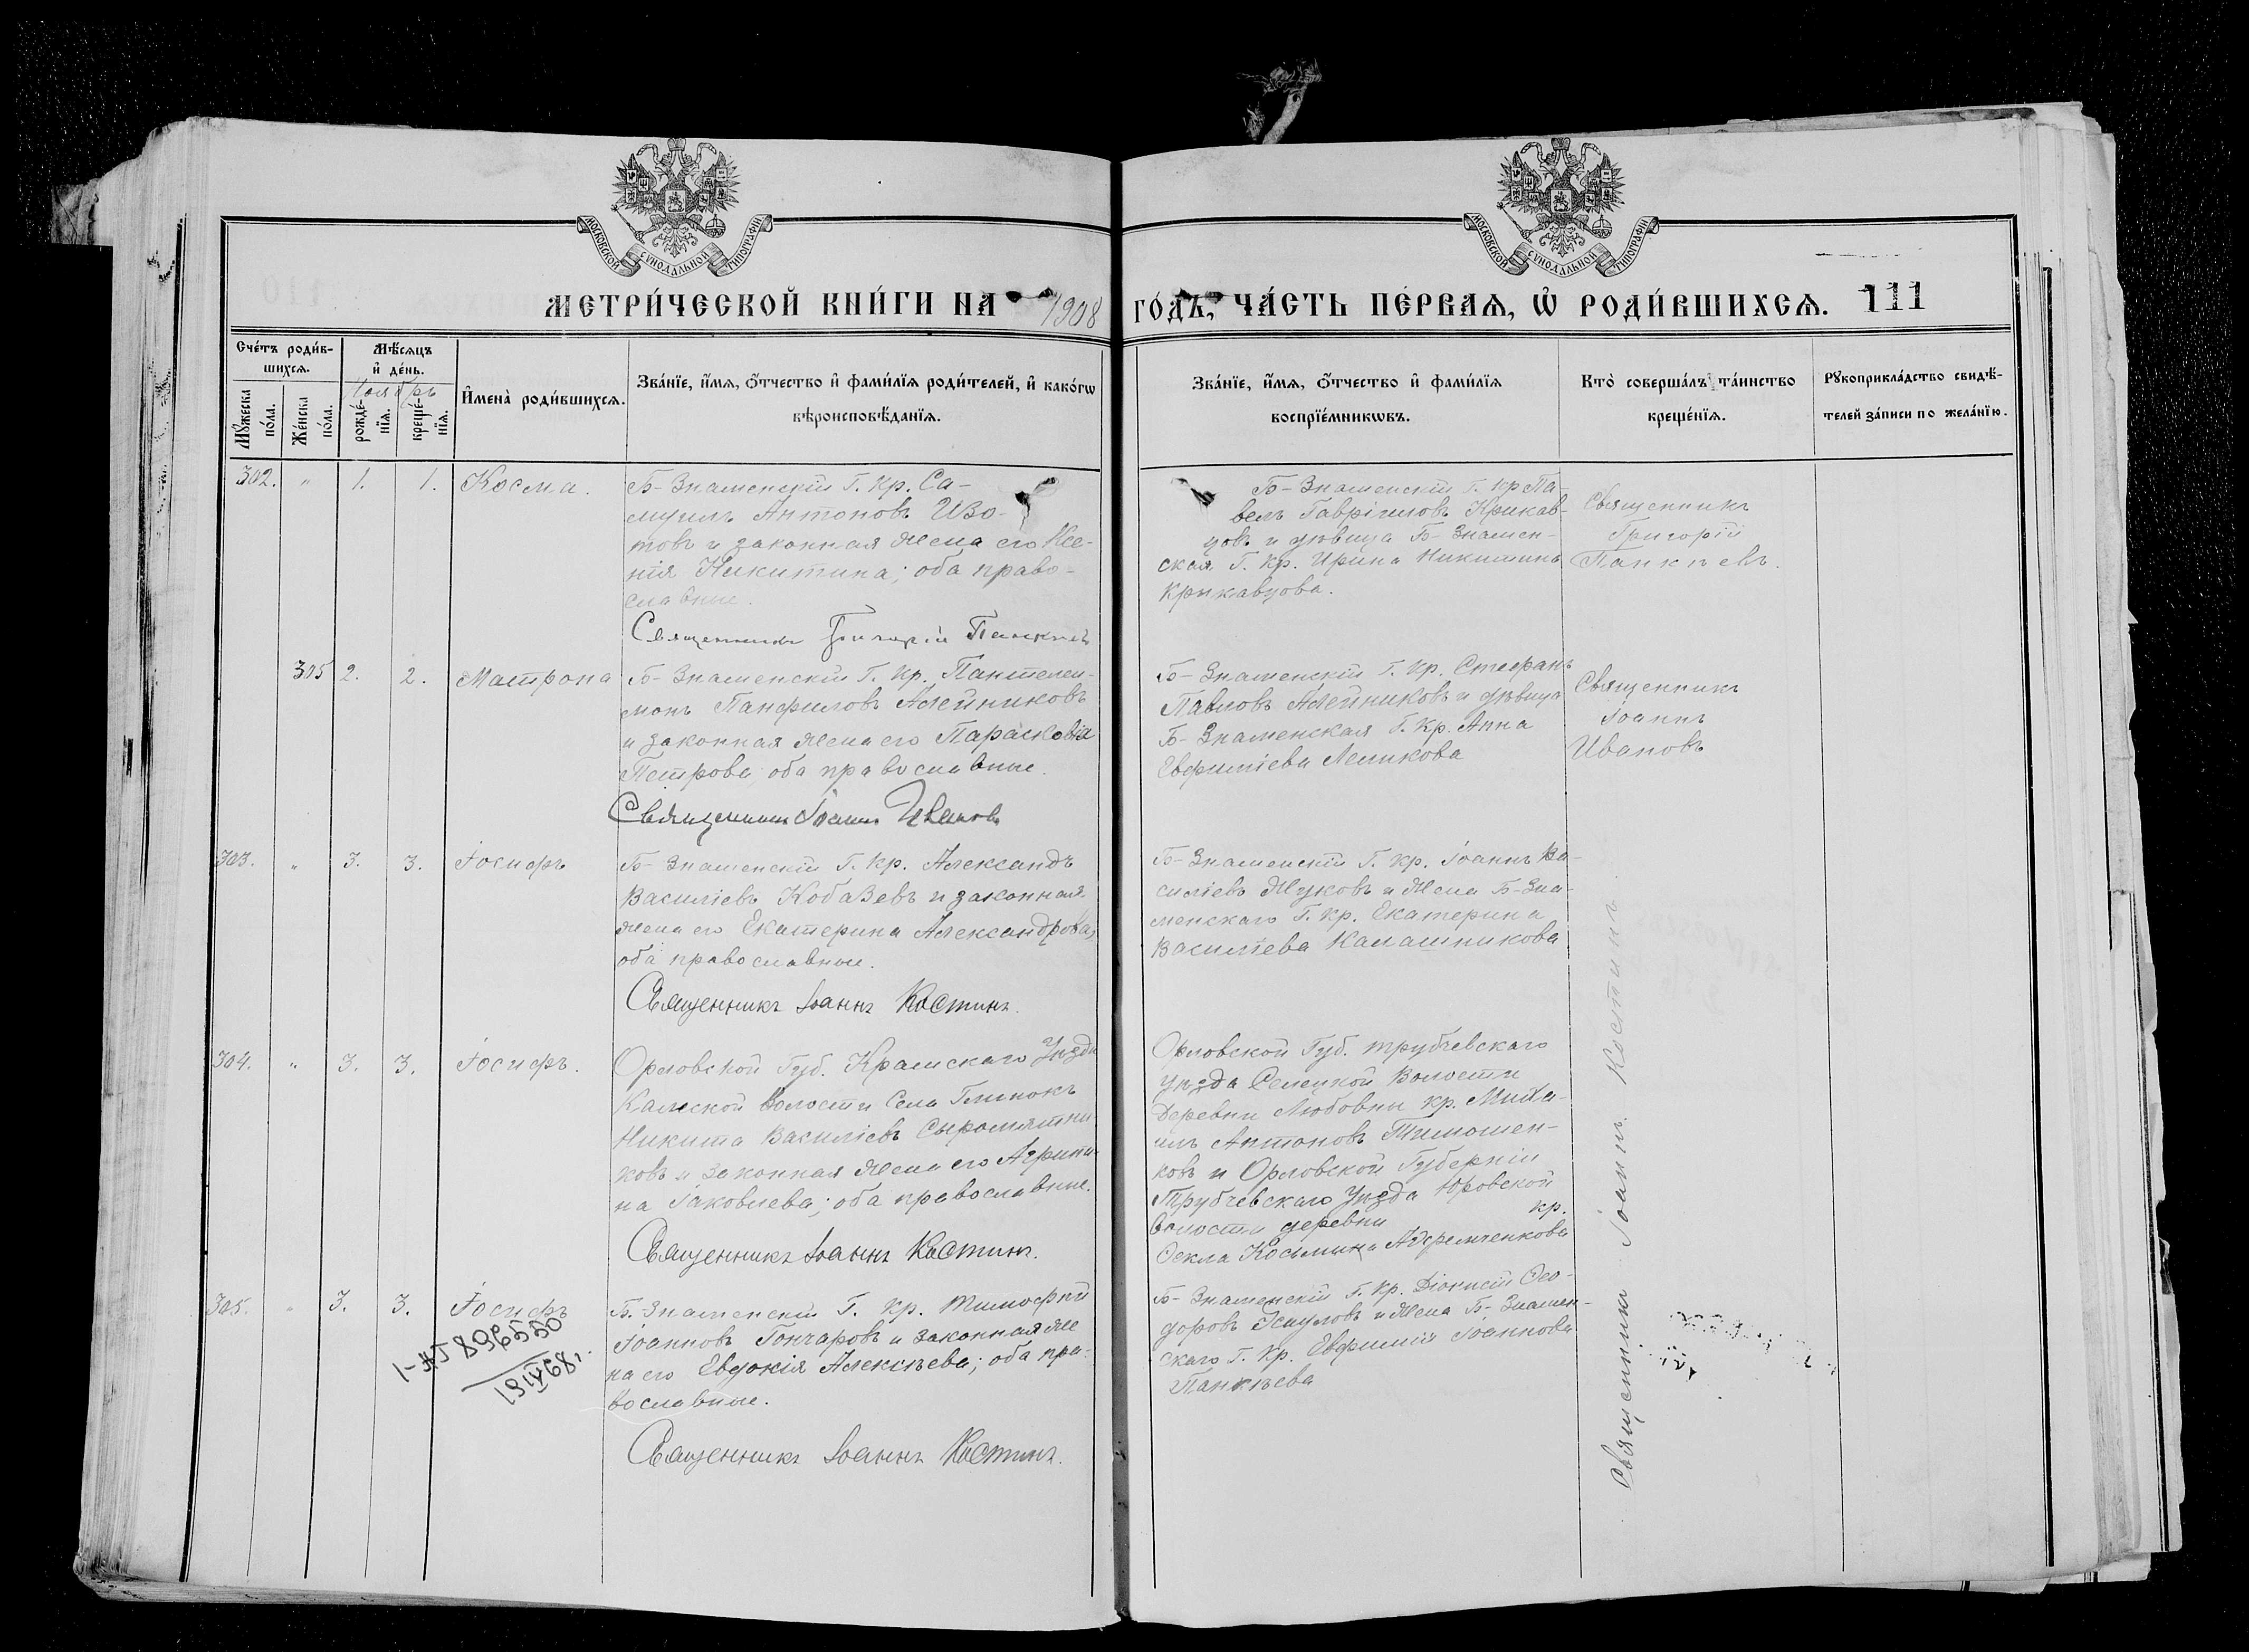 МОСКОВСКОЙ СѴНОДАЛЬНОЙ ТИПОГРАФІИ
МОСКОВСКОЙ СѴНОДАЛЬНОЙ ТИПОГРАФІИ
МЕТРИ́ЧЕСКОЙ КНИ́ГИ НА 1908 ГО́ДЪ, ЧА́СТЬ ПЕ́РВАѦ, Ѡ҆ РОДИ́ВШИХСѦ. 111
Сче́тъ роди́в-
шихсѧ.
Мꙋ́жеска
по́ла.
Же́нска
по́ла.
Мѣ́сѧцъ
и҆ де́нь.
Ноябрь
рожде́-
нїѧ.
креще́-
нїѧ.
И҆мена̀ роди́вшихсѧ.
Зва́нїе, и҆́мѧ, ѻ҆́тчество и҆ фами́лїѧ роди́телей, и҆ како́гѡ
вѣроисповѣ́данїѧ.
Зва́нїе, и҆́мѧ, ѻ҆́тчество и҆ фами́лїѧ
воспрїе́мникѡвъ.
Кто̀ соверша́лъ та́инство
креще́нїѧ.
Рꙋкоприкла́дство свидѣ́-
телей за́писи по жела́нїю.
302. " 1. 1. Косма.
Б-Знаменскій Г. Кр. Са-
муилъ Антоновъ Изо-
товъ и законная жена его Ксе-
нія Никитина; оба право-
славные.
Священникъ Григорій Панкѣевъ
Б-Знаменскій Г. Кр. Па-
велъ Гавріиловъ Крикав-
цовъ и дѣвица Б-Знамен-
ская Г. Кр. Ирина Никитина
Крикавцова.
Священникъ
Григорій
Панкѣевъ.
305 2. 2. Матрона
Б-Знаменскій Г. Кр. Пантелеи-
монъ Панфиловъ Алейниковъ
и законная жена его Параскевія
Петрова, оба православные.
Священникъ Іоаннъ Ивановъ
Б-Знаменскій Г. Кр. Стефанъ
Павловъ Алейниковъ и дѣвица
Б-Знаменская Г. Кр. Анна
Евфиміева
Священникъ
Іоаннъ
Ивановъ
303. " 3. 3. Іосифъ
Б-Знаменскій Г. Кр. Александъ
Василіевъ Кобазевъ и законная
жена его Екатерина Александрова;
оба православные.
Священникъ Іоаннъ Костинъ.
Б-Знаменскій Г. Кр. Іоаннъ Ва-
силіевъ Жуковъ и жена Б-Зна-
менскаго Г. Кр. Екатерина
Василіева Калашникова
304. " 3. 3. Іосифъ.
Орловской Губ. Уѣзда
волости Села Глинокъ
Никита Василіевъ Сыромятни-
ковъ и законная жена его Агрипи-
на Іаковлева; оба православные.
Священникъ Іоаннъ Костинъ.
Орловской Губ. Трубчевскаго
уѣзда Селецкой Волости
Деревни Любовны кр. Миха-
илъ Антоновъ Тимошен-
ковъ и Орловской Губерніи
Трубчевскаго Уѣзда Юровской
волости деревни кр.
Ѳекла Косьмина
305. " 3. 3. Іосифъ
1-АЈ 896550
19IV68г.
Б-Знаменскій Г. Кр. Тимофей
Іоанновъ Гончаровъ и законная же
на его Евдокія Алексѣева; оба пра-
вославные.
Священникъ Іоаннъ Костинъ.
Б-Знаменскій Г. Кр. Діонисій Ѳео-
доровъ Есауловъ и жена Б-Знамен-
скаго Г. Кр. Евфимія Іоаннова
Панкѣева
Священникъ Іоаннъ Костинъ.